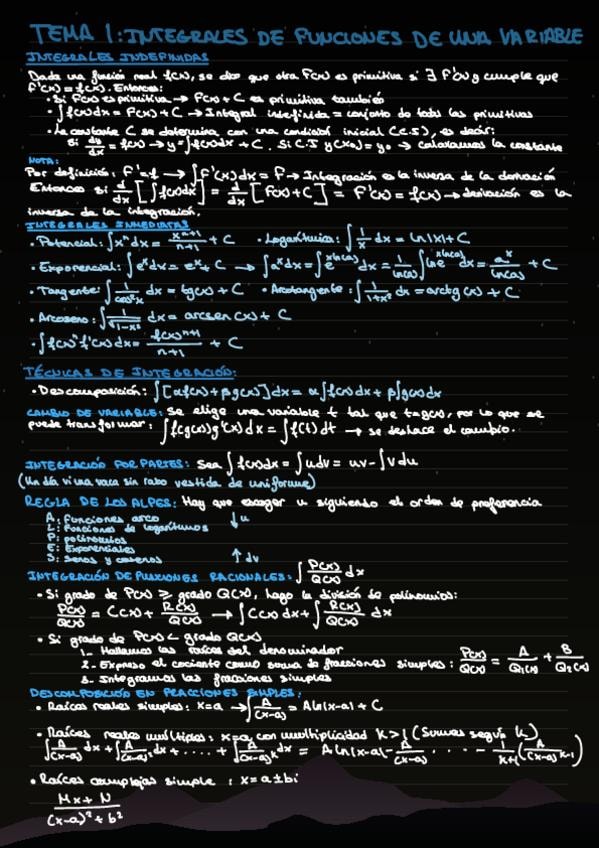 TEMA 1: INTEGRALES DE FUNCIONES DE UNA VARIABLE
INTEGRALES INDEFINIDAS
Dada una función real f(x), se dice que otra F(x) es primitiva si ∃ F'(x) y cumple que
F'(x) = f(x). Entonces:
• Si F(x) es primitiva → F(x) + C es primitiva también
• ∫f(x)dx = F(x) + C → Integral indefinida = conjunto de todas las primitivas
• La constante C se determina con una condición inicial (C.I), es decir:
Si dy/dx = f(x) → y = ∫f(x)dx + C. Si C.I y(x₀) = y₀ → calculamos la constante
NOTA:
Por definición: F' = f → ∫F'(x)dx = F → Integración es la inversa de la derivación
Entonces si d/dx [∫f(x)dx] = d/dx [F(x) + C] = F'(x) = f(x) → derivación es la
inversa de la integración.
INTEGRALES INMEDIATAS
• Potencial: ∫xⁿdx = xⁿ⁺¹/n+1 + C • Logarítmica: ∫1/x dx = ln|x| + C
• Exponencial: ∫eˣdx = eˣ + C → ∫aˣdx = ∫e^(x ln(a))dx = 1/ln(a) ∫ln e^(x ln(a))dx = aˣ/ln(a) + C
• Tangente: ∫1/cos²x dx = tg(x) + C • Arcotangente: ∫1/1+x² dx = arctg(x) + C
• Arcoseno: ∫1/√1-x² dx = arcsen(x) + C
• ∫f(x)ⁿ f'(x)dx = f(x)ⁿ⁺¹/n+1 + C
TÉCNICAS DE INTEGRACIÓN:
• Descomposición: ∫[αf(x) + βg(x)]dx = α∫f(x)dx + β∫g(x)dx
CAMBIO DE VARIABLE: Se elige una variable t tal que t=g(x), por lo que se
puede transformar: ∫f(g(x))g'(x)dx = ∫f(t)dt → se deshace el cambio.
INTEGRACIÓN POR PARTES: Sea ∫f(x)dx = ∫udv = uv - ∫vdu
(Un día vi una vaca sin rabo vestida de uniforme)
REGLA DE LOS ALPES: Hay que escoger u siguiendo el orden de preferencia
A: funciones arco ↓u
L: Funciones de logaritmos
P: polinomios
E: Exponenciales
S: senos y cosenos ↑dv
INTEGRACIÓN DE FUNCIONES RACIONALES: ∫P(x)/Q(x) dx
• Si grado de P(x) ≥ grado Q(x), hago la división de polinomios:
P(x)/Q(x) = C(x) + R(x)/Q(x) → ∫C(x)dx + ∫R(x)/Q(x) dx
• Si grado de P(x) < grado Q(x)
1- Hallamos las raíces del denominador
2- Expreso el cociente como suma de fracciones simples: P(x)/Q(x) = A/Q₁(x) + B/Q₂(x)
3- Integramos las fracciones simples
DESCOMPOSICIÓN EN FRACCIONES SIMPLES:
• Raíces reales simples: x=a → ∫A/(x-a) = Aln|x-a| + C
• Raíces reales múltiples: x=a, con multiplicidad k>1 (Sumas según k)
∫A/(x-a) dx + ∫A/(x-a)² dx + .... + ∫A/(x-a)ᵏ dx = Aln|x-a| - A/(x-a) ... - 1/k+1 (A/(x-a)ᵏ⁻¹)
• Raíces complejas simple: x = a ± bi
Mx + N/(x-a)² + b²